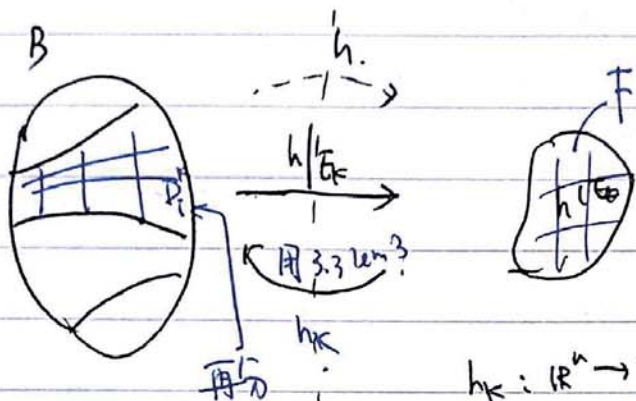 B
h.
F
h|E_K
D_i
h(E
用 3.3 lem?
h_K
再分
h_K : ℝⁿ →